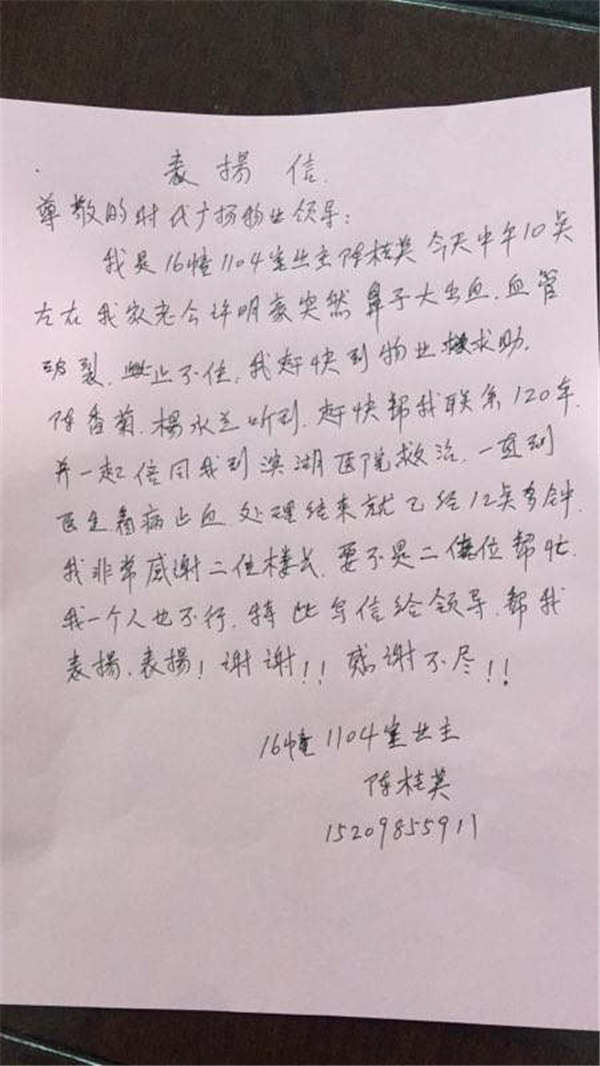 表揚信
尊敬的时代广场物业领导:
我是16幢1104室业主陈桂英今天中午10点
左右我家老公许明豪突然鼻子大出血.血管
破裂.止不住.我赶快到物业求助.
陈香菊.楊永兰听到.赶快帮我联系120车.
并一起陪同我到滨湖医院救治.一直到
医生看病止血处理结束就已经12点多钟.
我非常感谢二位楼长.要不是二位帮忙.
我一个人也不行.特此写信给领导.帮我
表揚.表揚!谢谢!!感谢不尽!!
16幢1104室业主
陈桂英
15209855911